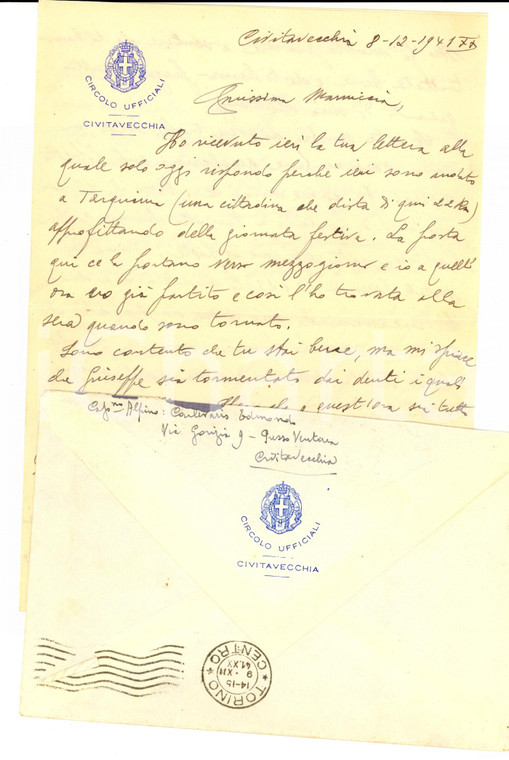 Civitavecchia 8-12-1941 XX
CIRCOLO UFFICIALI
CIVITAVECCHIA
Carissima Mammina,
Ho ricevuto ieri la tua lettera alla
quale solo oggi rispondo perchè ieri sono andato
a Tarquinia (una cittadina che dista di qui 22 Km)
approfittando della giornata festiva. La posta
qui ce la portano verso mezzogiorno e io a quell'
ora ero già partito e così l'ho trovata alla
sera quando sono tornato.
Sono contento che tu stai bene, ma mi spiace
che Giuseppe sia tormentato dai denti i quali
che a quest'ora sia tutto
Alpino: Edmondo
Via Gorizia 9 - presso Ventura
Civitavecchia
CIRCOLO UFFICIALI
CIVITAVECCHIA
TORINO CENTRO
14-15
9 · XII
41.XX